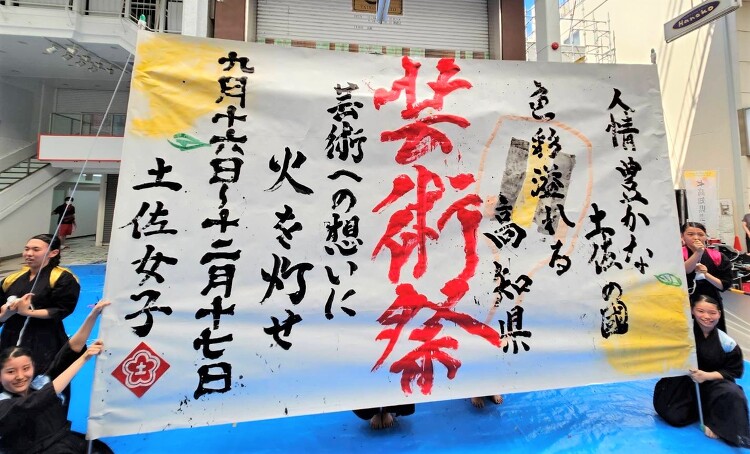 人情豊かな
土佐の國
色彩溢れる
高知県
芸術祭
芸術への想いに
火を灯せ
九月十六日~十二月十七日
土佐女子
土
Hanako